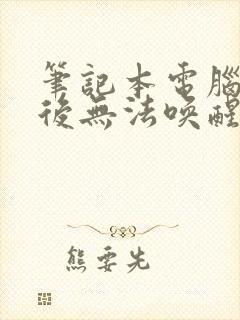 筆記本電腦
後無法喚醒
熊要先